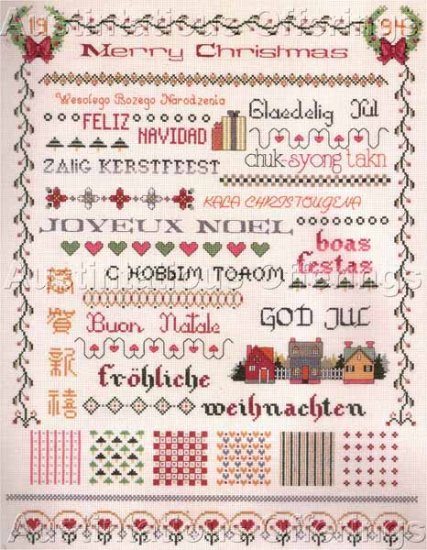 19 94
Merry Christmas
Wesolego Bozego Narodzenia
Glaedelig Jul
FELIZ
NAVIDAD
chuk-syong takn
ZALIG KERSTFEEST
KALA CHRISTOUGENA
JOYEUX NOEL
boas
festas
С НОВЫМ ГОДОМ
恭賀新禧
Buon Natale
GOD JUL
fröhliche
weihnachten